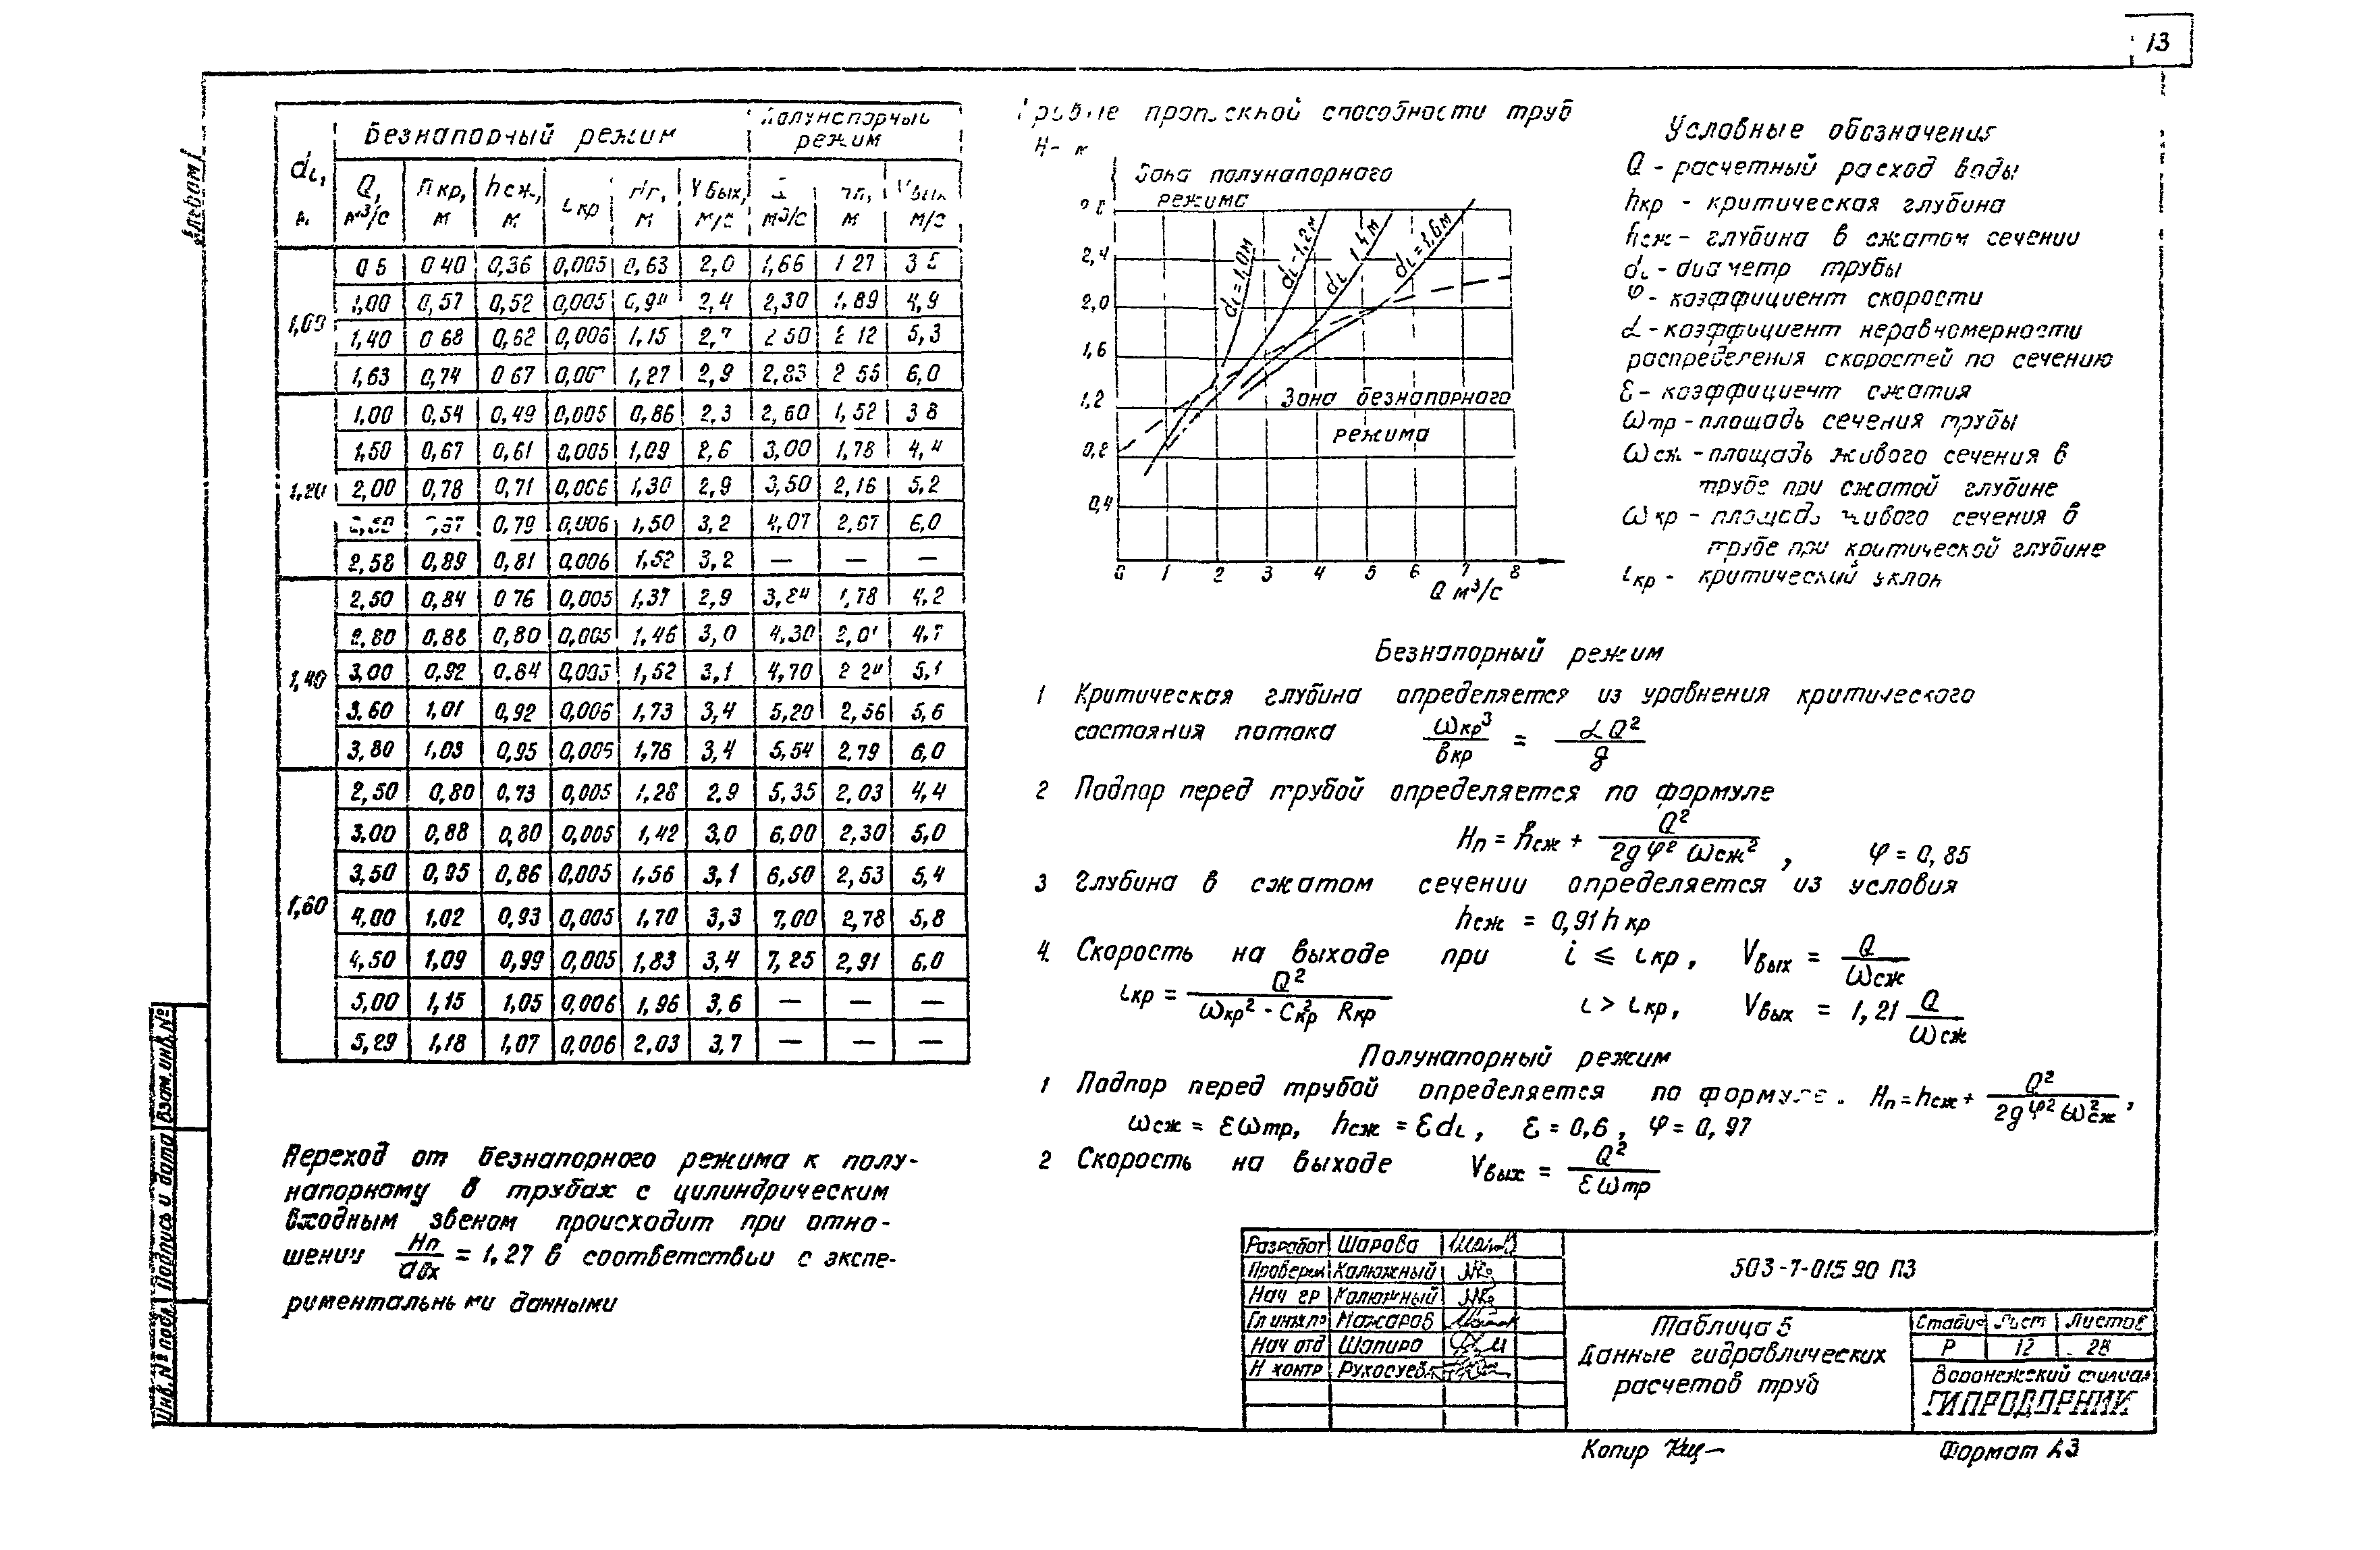 13
Альбом 1
di, Безнапорный режим Полунапорный режим
Q, м³/с hкр, м hсж, м iкр м Vвых, м/с м³/с м Vвых м/с
0,36 0,005 0,63 2,0 1,66 1 27
1,00 0,57 0,52 0,005 2,4 2,30 1,89 4,9
1,40 0 68 0,62 0,006 1,15 2 50 2 12 5,3
1,63 0,74 0 67 1,27 2,9 2,83 2 55 6,0
1,00 0,54 0,49 0,005 0,86 2,3 2,60 1,52 3 8
1,20 1,50 0,67 0,61 0,005 1,09 2,6 3,00 1,78 4,4
2,00 0,78 0,71 0,006 1,30 2,9 3,50 2,16 5,2
0,79 0,006 1,50 3,2 4,07 2,67 6,0
2,58 0,89 0,81 0,006 1,52 3,2 — — —
1,40 2,50 0,84 0 76 0,005 1,37 2,9 3,84 1,78 4,2
2,80 0,88 0,80 0,005 1,46 3,0 4,30 2,01 4,7
3,00 0,92 0,84 0,005 1,52 3,1 4,70 2 24 5,1
3,60 1,01 0,92 0,006 1,73 3,4 5,20 2,56 5,6
3,80 1,03 0,95 0,005 1,78 3,4 5,54 2,79 6,0
2,50 0,80 0,73 0,005 1,28 2,9 5,35 2,03 4,4
3,00 0,88 0,80 0,005 1,42 3,0 6,00 2,30 5,0
3,50 0,95 0,86 0,005 1,56 3,1 6,50 2,53 5,4
1,60 4,00 1,02 0,93 0,005 1,70 3,3 7,00 2,78 5,8
4,50 1,09 0,99 0,005 1,83 3,4 7,25 2,91 6,0
5,00 1,15 1,05 0,006 1,96 3,6 — — —
5,29 1,18 1,07 0,006 2,03 3,7 — — —
Переход от безнапорного режима к полу-
напорному в трубах с цилиндрическим
входным звеном происходит при отно-
шении Hп/dвх = 1,27 в соответствии с экспе-
риментальными данными
пропускной способности труб
Зона полунапорного
режима
2,4
2,0
1,6
1,2
0,8
0,4
0 1 2 3 4 5 6 7 8
Q м³/с
di = 1,0м
di - 1,2м
di 1,4м
di = 1,6м
Зона безнапорного
режима
Условные обозначения
Q - расчетный расход воды
hкр - критическая глубина
hсж - глубина в сжатом сечении
di - диаметр трубы
φ - коэффициент скорости
α - коэффициент неравномерности
распределения скоростей по сечению
ε - коэффициент сжатия
ωтр - площадь сечения трубы
ωсж - площадь живого сечения в
трубе при сжатой глубине
ωкр - площадь живого сечения в
трубе при критической глубине
iкр - критический уклон
Безнапорный режим
1 Критическая глубина определяется из уравнения критического
состояния потока ωкр³/вкр = αQ²/g
2 Подпор перед трубой определяется по формуле
Hп = hсж + Q²/2gφ²ωсж², φ = 0,85
3 Глубина в сжатом сечении определяется из условия
hсж = 0,91hкр
4. Скорость на выходе при i ≤ iкр, Vвых = Q/ωсж
iкр = Q²/ωкр² · C²кр Rкр i > iкр, Vвых = 1,21 Q/ωсж
Полунапорный режим
1 Подпор перед трубой определяется по формуле. Hп = hсж + Q²/2gφ²ω²сж,
ωсж = εωтр, hсж = εdi, ε = 0,6, φ = 0,97
2 Скорость на выходе Vвых = Q²/εωтр
Разработ Шарова
Проверил Калюжный
Нач гр Калюжный
Гл инж пр Мажаров
Нач отд Шапиро
Н контр
503-7-015 90 ПЗ
Таблица 5
Данные гидравлических
расчетов труб
Стадия Лист Листов
Р 12 28
Воронежский филиал
ГИПРОДОРНИИ
Копир
Формат А3
Взам.инв.№
Подпись и дата
Инв.№ подл.